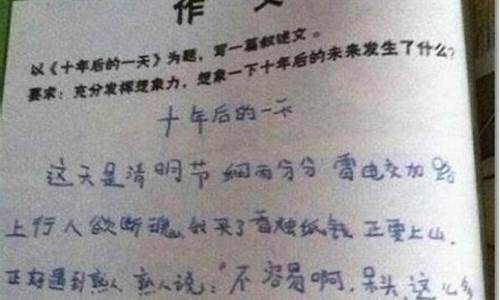 作文
以《十年后的一天》为题，写一篇叙述文。
要求：充分发挥想象力，想象一下十年后的未来发生了什么？
十年后的一天
这天是清明节 细雨分分 雷电交加 路
上行人欲断魂，我买了香烛纸钱 正要上山，
正好遇到熟人，熟人说：“不容易啊，呆头 这么多